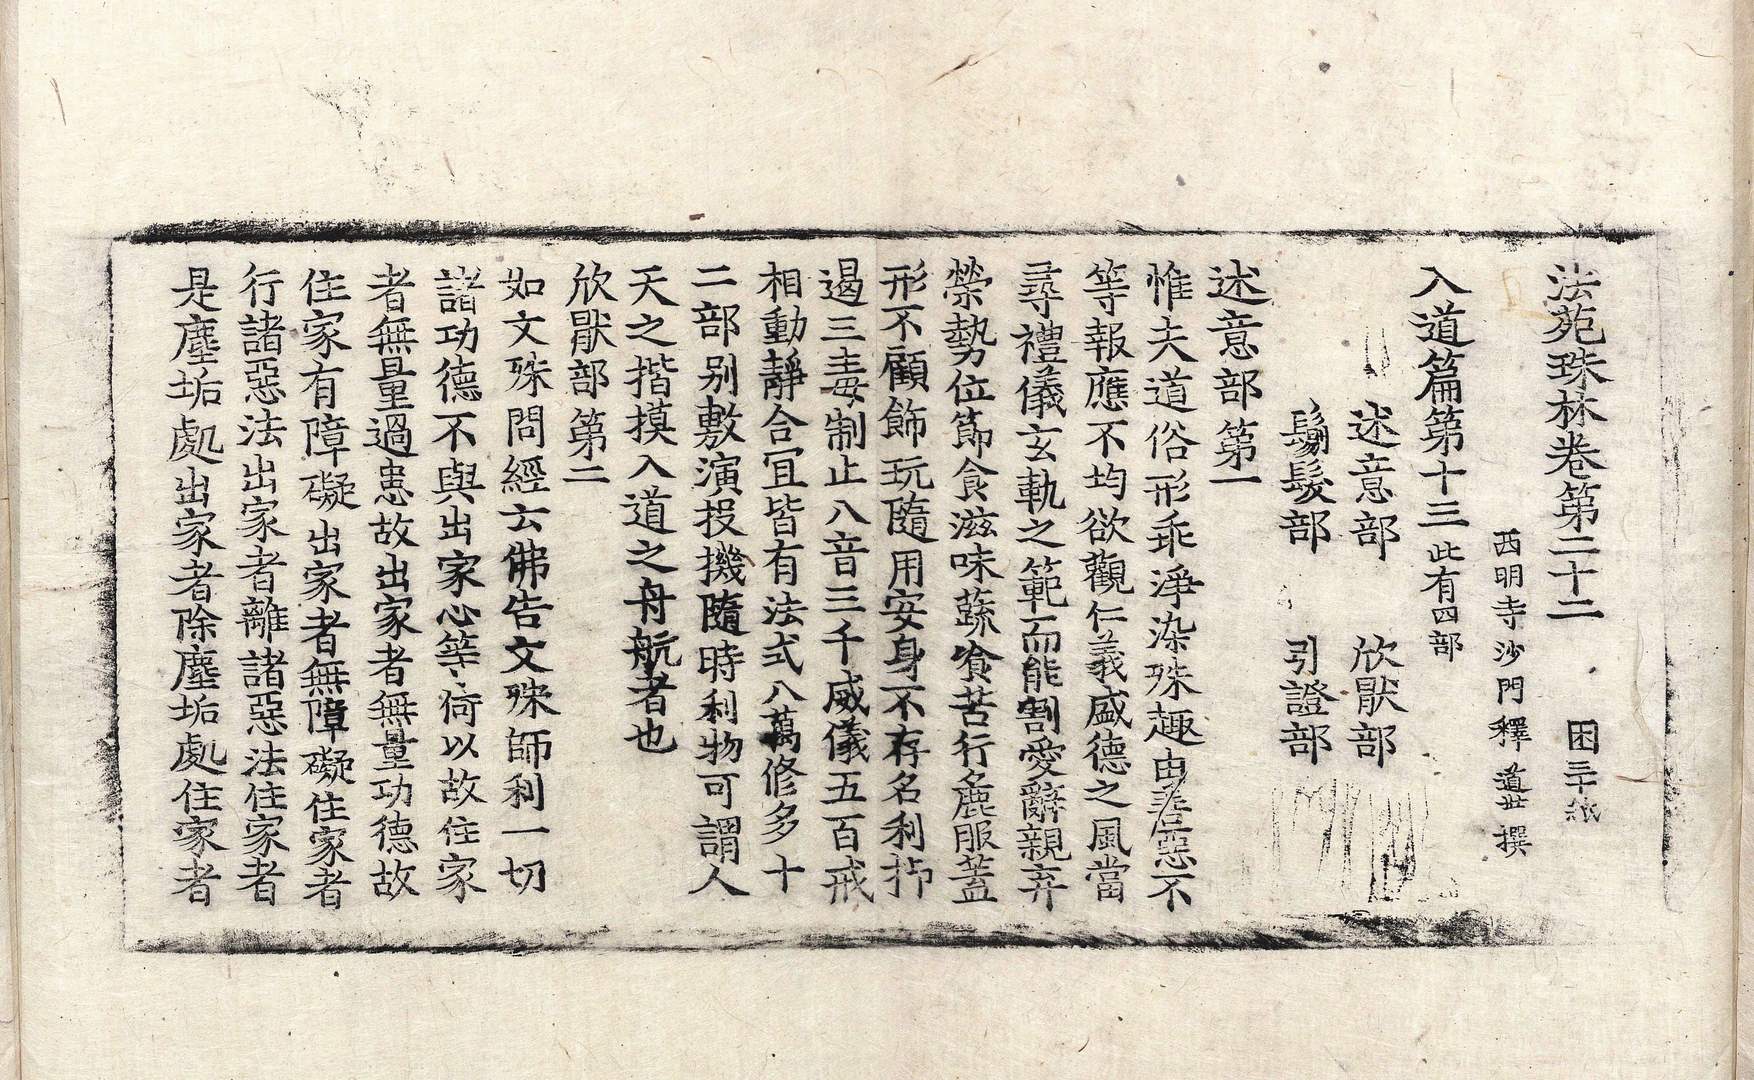 法苑珠林卷第二十二 困 三十紙
西明寺沙門釋道世撰
入道篇第十三此有四部
述意部 欣猒部
鬀髮部 引證部
述意部第一
惟夫道俗形乖淨染殊趣由善惡不
等報應不均欲觀仁義盛德之風當
尋禮儀玄軌之範而能割愛辭親弃
榮勢位節食滋味蔬飡苦行麁服蓋
形不顧飾玩隨用安身不存名利抑
遏三毒制止八音三千威儀五百戒
相動靜合冝皆有法式八萬修多十
二部别敷演投機隨時利物可謂人
天之揩摸入道之舟航者也
欣猒部第二
如文殊問經云佛告文殊師利一切
諸功德不與出家心等何以故住家
者無量過患故出家者無量功德故
住家有障礙出家者無障礙住家者
行諸惡法出家者離諸惡法住家者
是塵垢處出家者除塵垢處住家者